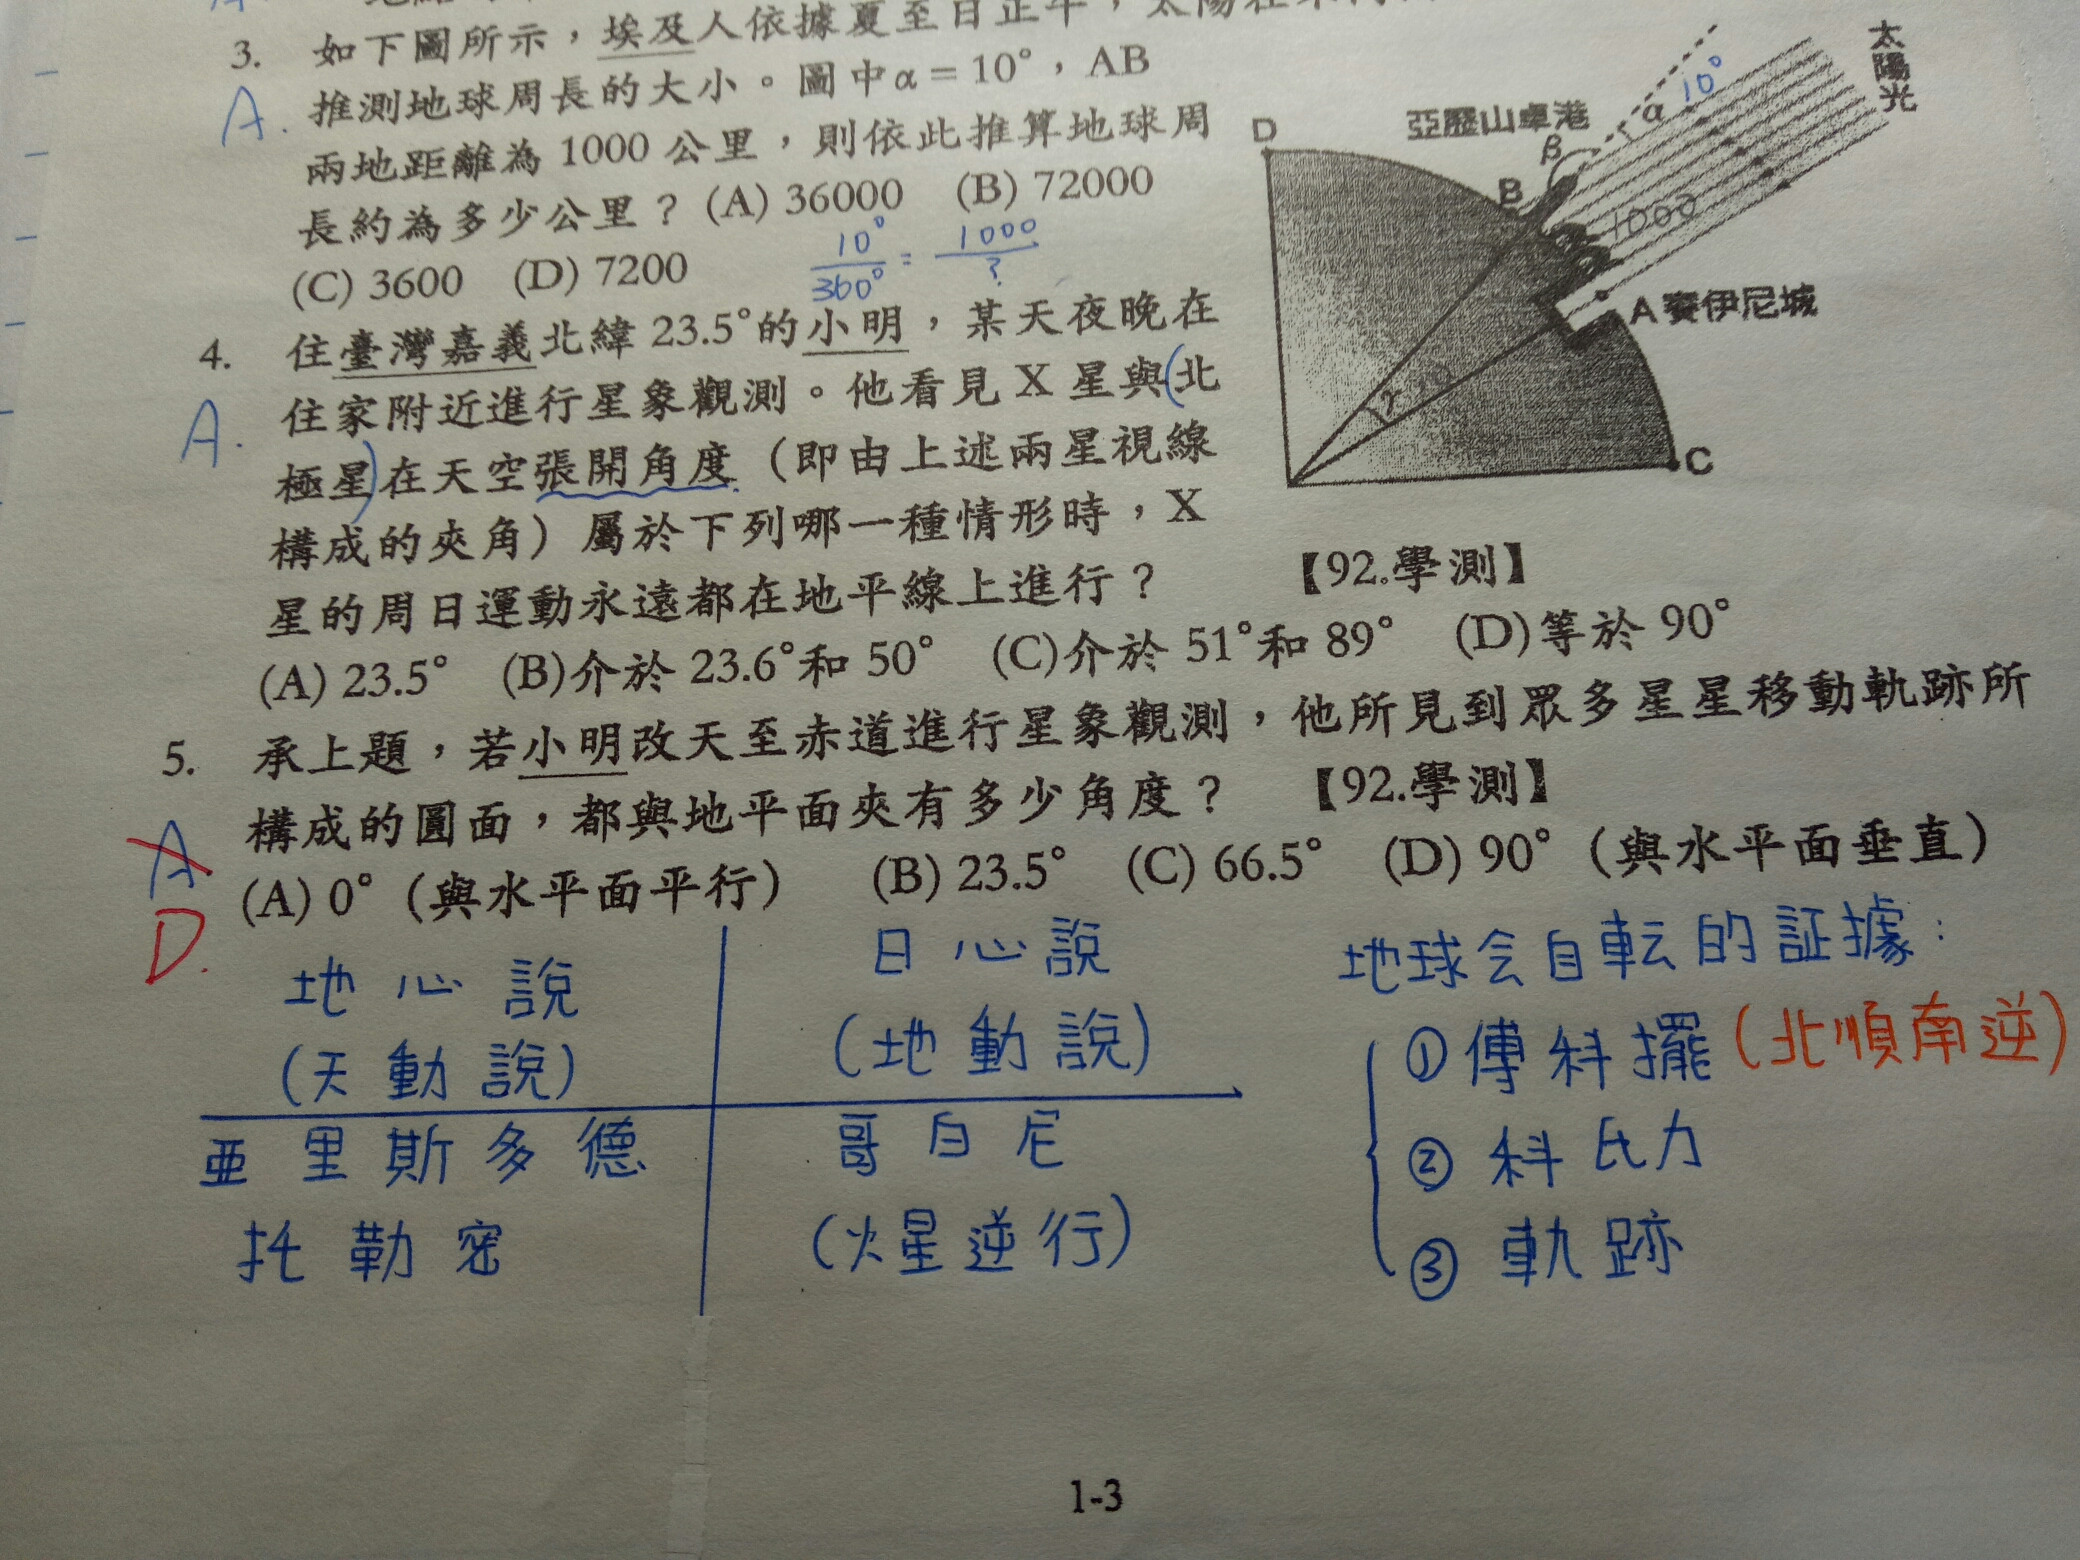 3. 如下圖所示，埃及人依據夏至日正午，太陽在
A. 推測地球周長的大小。圖中α＝10°，AB
兩地距離為 1000 公里，則依此推算地球周
長約為多少公里？ (A) 36000 (B) 72000
(C) 3600 (D) 7200
10°/360° = 1000/?
太陽光
10°
α
亞歷山卓港
D
β
B
1000
A 賽伊尼城
C
4. 住臺灣嘉義北緯 23.5°的小明，某天夜晚在
A. 住家附近進行星象觀測。他看見 X 星與(北
極星)在天空張開角度（即由上述兩星視線
構成的夾角）屬於下列哪一種情形時，X
星的周日運動永遠都在地平線上進行？ 【92.學測】
(A) 23.5° (B)介於 23.6°和 50° (C)介於 51°和 89° (D)等於 90°
5. 承上題，若小明改天至赤道進行星象觀測，他所見到眾多星星移動軌跡所
構成的圓面，都與地平面夾有多少角度？ 【92.學測】
A (A) 0°（與水平面平行） (B) 23.5° (C) 66.5° (D) 90°（與水平面垂直）
D.
地心說
(天動說)
亞里斯多德
托勒密
日心說
(地動說)
哥白尼
(火星逆行)
地球会自転的証據：
① 傅科擺 (北順南逆)
② 科氏力
③ 軌跡
1-3